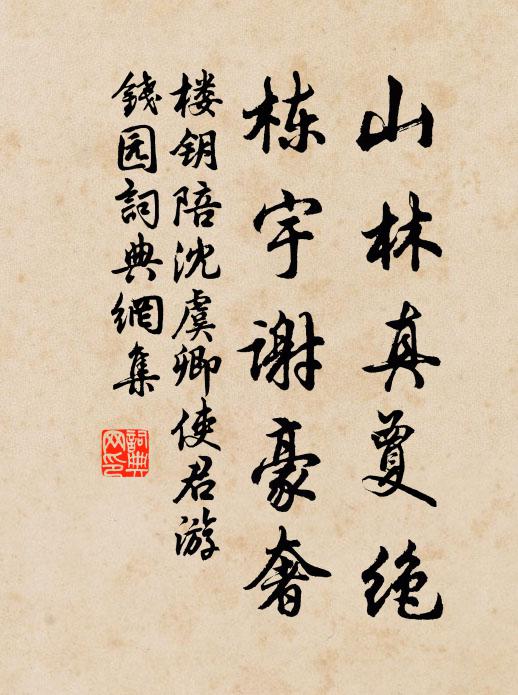 山林真夐绝
栋宇谢豪奢
楼钥陪沈虞卿使君游
钱园詞典網集
詞典
网印